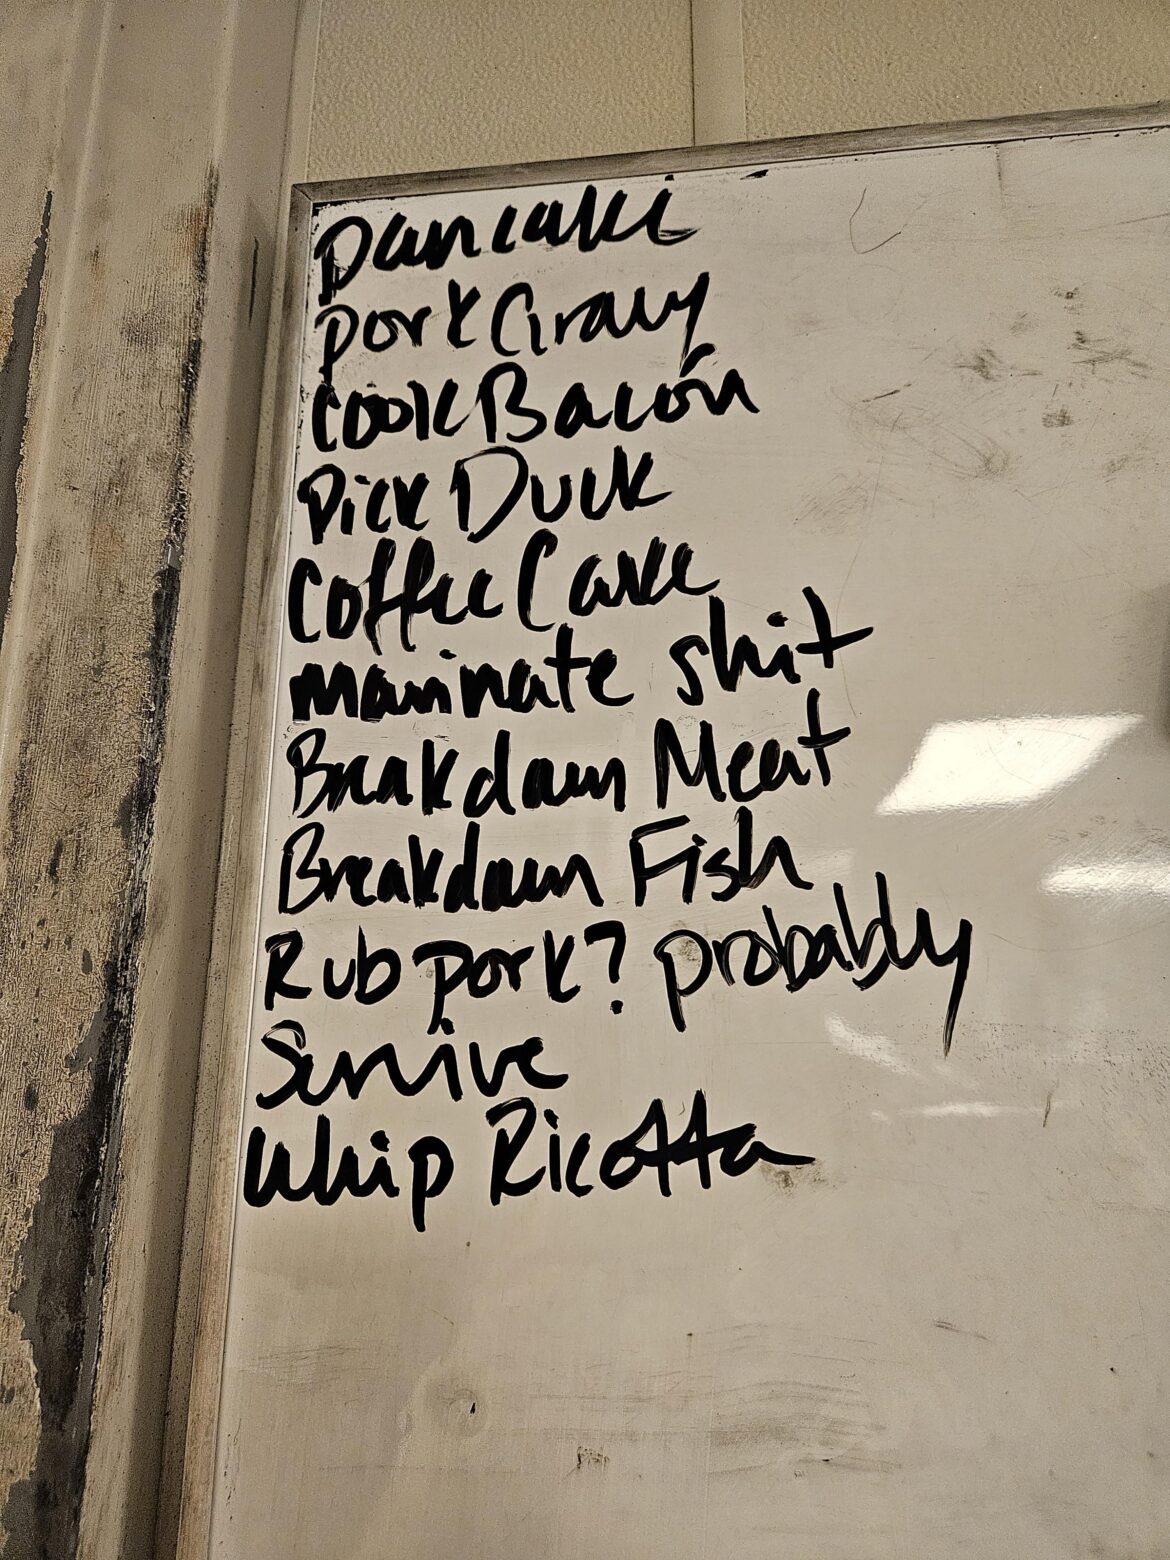 Pancake
Pork Gravy
Cook Bacon
Pick Duck
Coffee Cake
marinate shit
Breakdown Meat
Breakdown Fish
Rub pork? probably
Survive
Whip Ricotta